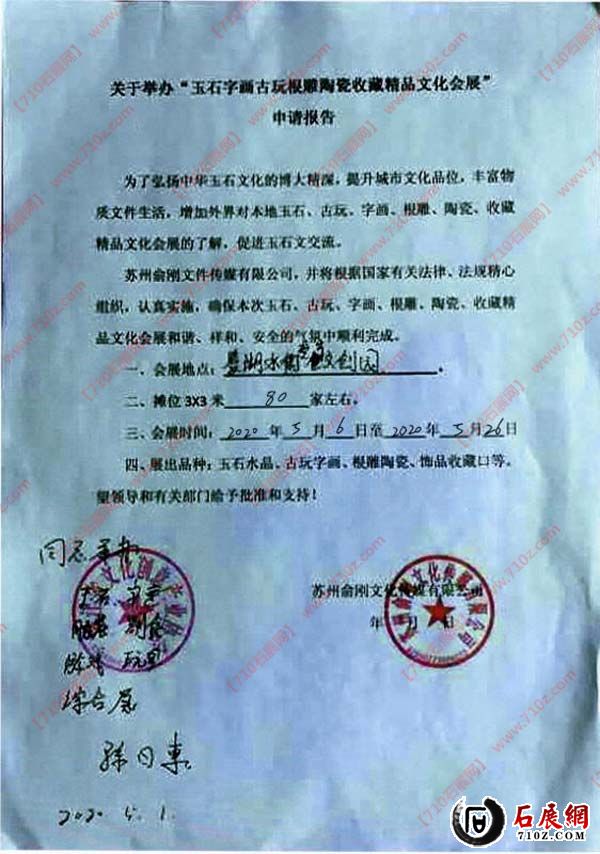 关于举办“玉石字画古玩根雕陶瓷收藏精品文化会展”
申请报告
为了弘扬中华玉石文化的博大精深，提升城市文化品位，丰富物
质文件生活，增加外界对本地玉石、古玩、字画、根雕、陶瓷、收藏
精品文化会展的了解，促进玉石文交流。
苏州俞刚文件传媒有限公司，并将根据国家有关法律、法规精心
组织，认真实施，确保本次玉石、古玩、字画、根雕、陶瓷、收藏精
品文化会展和谐、祥和、安全的气氛中顺利完成。
一、会展地点：文创园。
二、摊位 3X3 米 80 家左右。
三、会展时间：2020 年 5 月 6 日至 2020 年 5 月 26 日
四、展出品种：玉石水晶、古玩字画、根雕陶瓷、饰品收藏口等。
望领导和有关部门给予批准和支持！
同意
苏州俞刚文化传媒有限公司
年 月 日
综合
2020 5. 1.
【710石展网】www.710z.com
石展網
710Z.COM